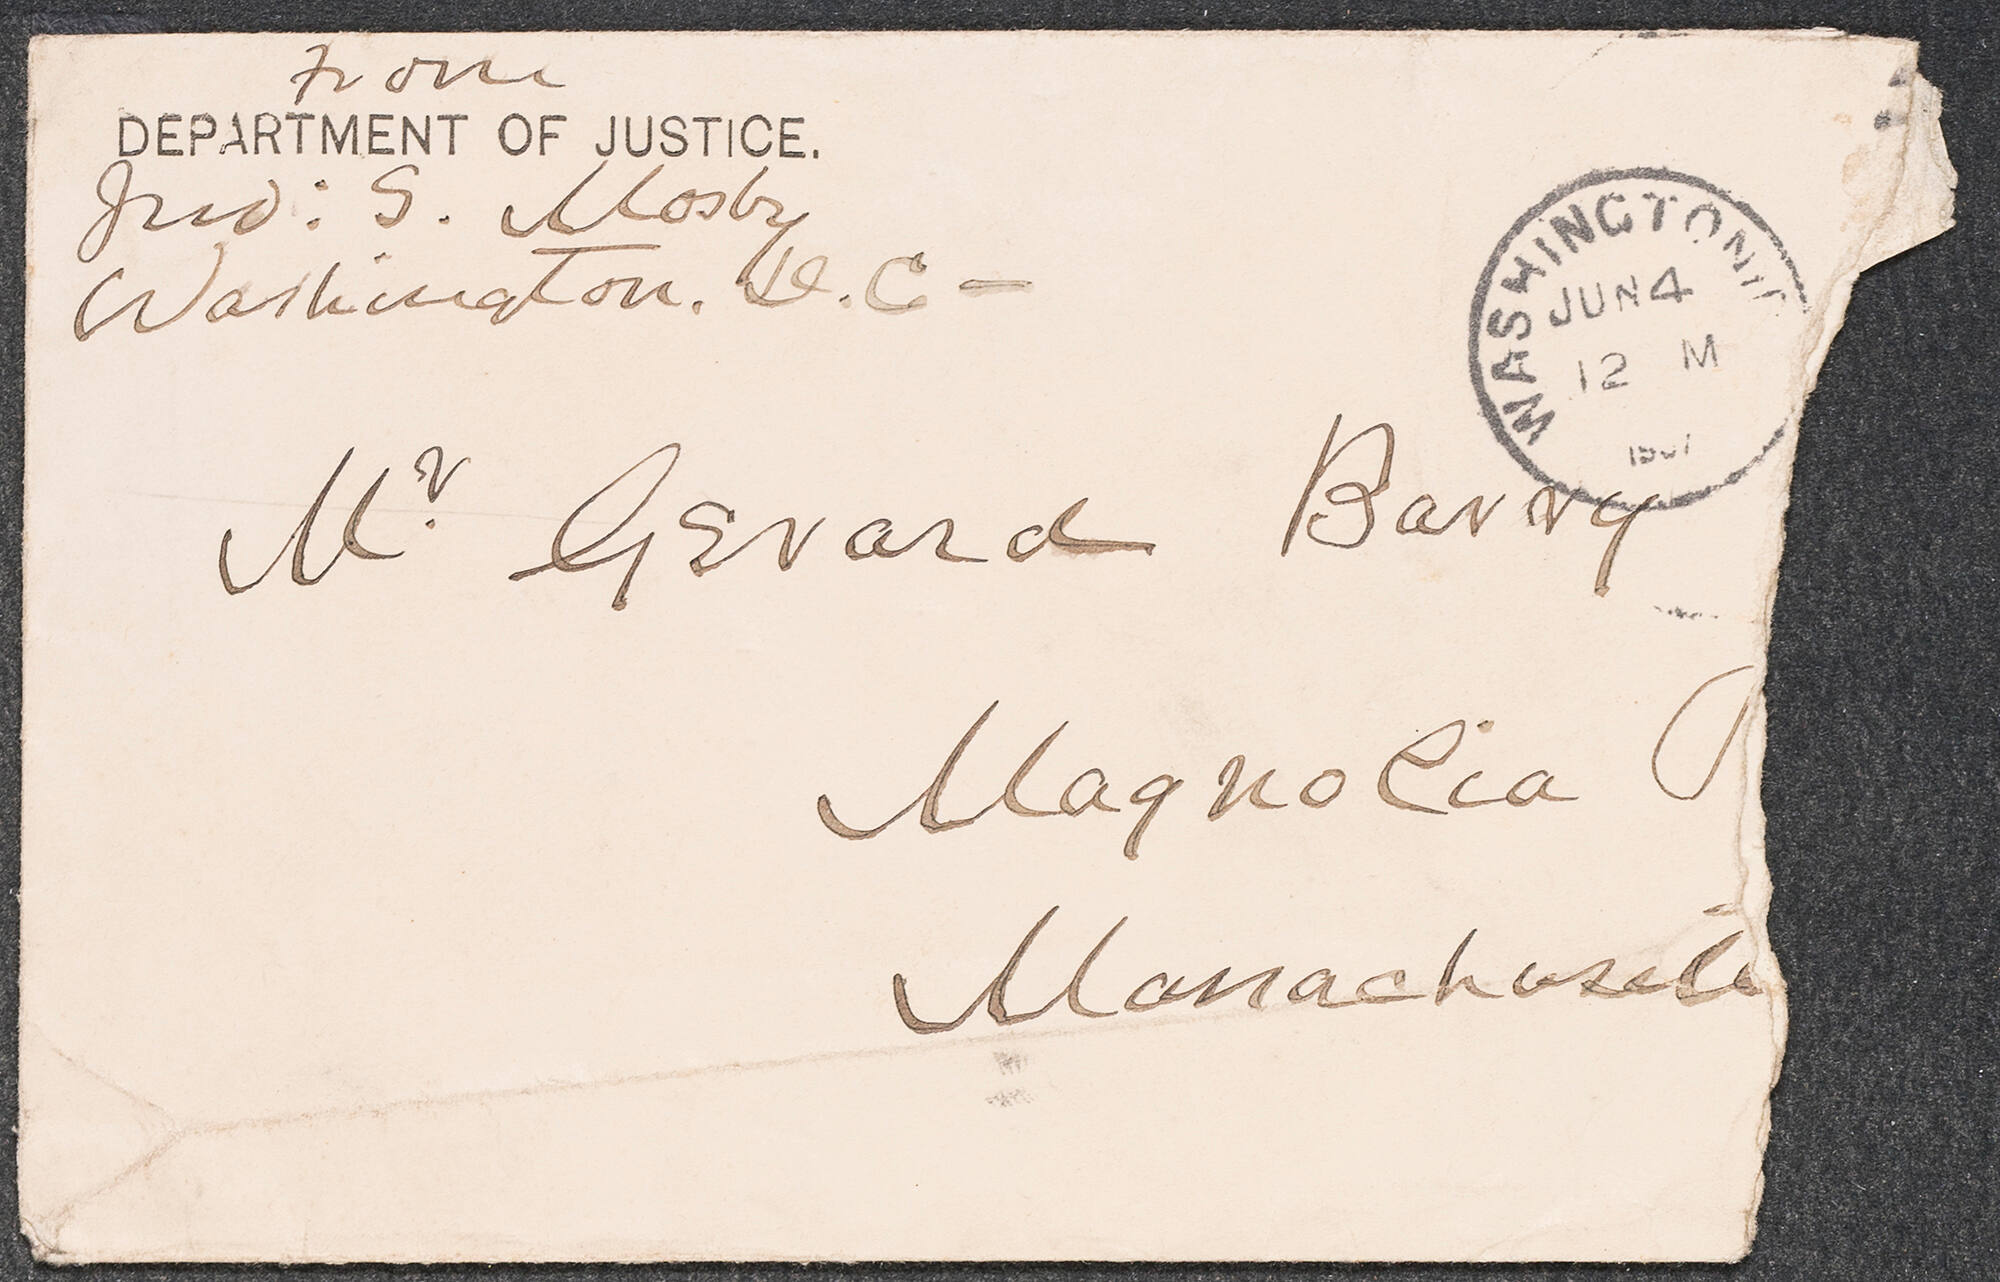 From
DEPARTMENT OF JUSTICE.
Jno: S. Mosby
Washington. D.C -
WASHINGTON
JUN 4
12 M
Mr. Gerard Barry
Magnolia
Massachusetts